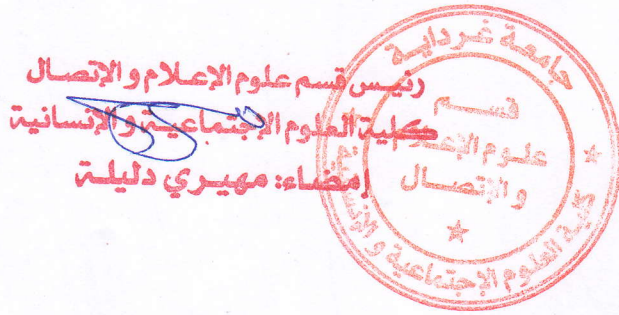 رئيس قسم علوم الإعلام و الإتصال
كلية العلوم الإجتماعية و الإنسانية
إمضاء: مهيري دليلة
جامعة غرداية
قسم
علوم الإعلام
و الإتصال
كلية العلوم الإجتماعية و الإنسانية